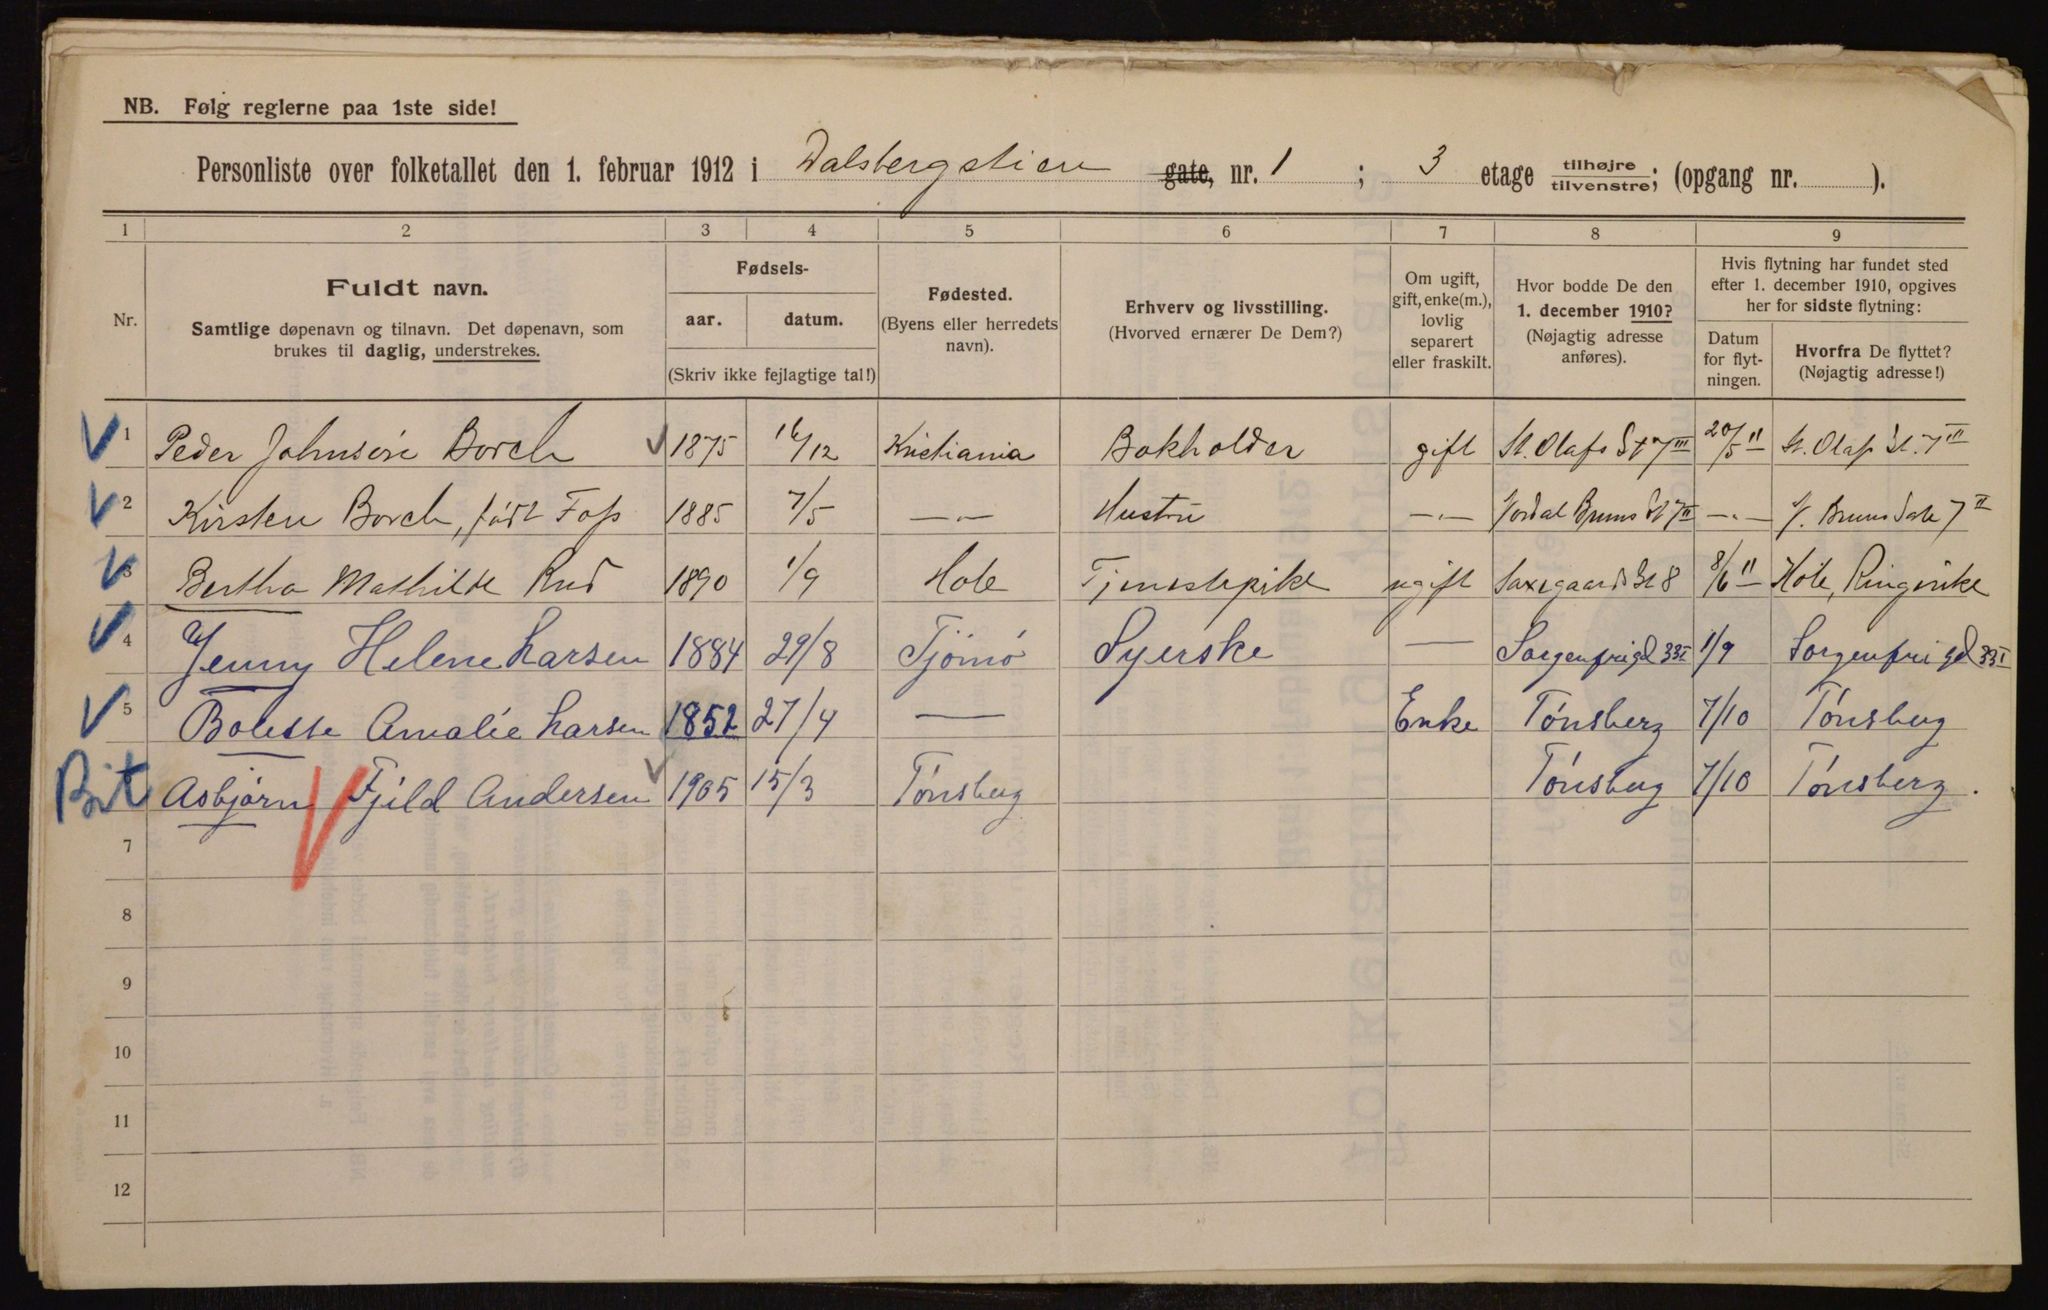 NB. Følg reglerne paa 1ste side!
Personliste over folketallet den 1. februar 1912 i Dalsbergstien gate, nr. 1 ; 3 etage tilhøjre tilvenstre; (opgang nr. ).
1 2 3 4 5 6 7 8 9
Nr.
Fuldt navn.
Samtlige døpenavn og tilnavn. Det døpenavn, som
brukes til daglig, understrekes.
Fødsels-
aar. datum.
(Skriv ikke fejlagtige tal!)
Fødested.
(Byens eller herredets
navn).
Erhverv og livsstilling.
(Hvorved ernærer De Dem?)
Om ugift,
gift, enke(m.),
lovlig
separert
eller fraskilt.
Hvor bodde De den
1. december 1910?
(Nøjagtig adresse
anføres).
Hvis flytning har fundet sted
efter 1. december 1910, opgives
her for sidste flytning:
Datum
for flyt-
ningen.
Hvorfra De flyttet?
(Nøjagtig adresse!)
1 Peder Johnsen Borch 1875 16/12 Kristiania Bokholder gift St. Olafs Gt 7 III 20/5 11 St. Olafs Gt. 7 III
2 Kirsten Borch, født Foss 1885 7/5 —„— Hustru —„— Jordal Bruns Gt 7 II —„— J. Bruns Gate 7 II
3 Bertha Mathilde Rud 1890 1/9 Hole Tjenestepike ugift Saxegaards Gt 8 8/6 11 Hole, Ringerike
4 Jenny Helene Larsen 1884 29/8 Tjömö Syerske — Sorgenfrigd 33 I 1/9 Sorgenfri gd 33 I
5 Bolette Amalie Larsen 1852 27/4 — Enke Tønsberg 7/10 Tønsberg
Bit 6 Asbjørn Fjeld Andersen 1905 15/3 Tønsberg Tønsberg 7/10 Tønsberg.
7
8
9
10
11
12